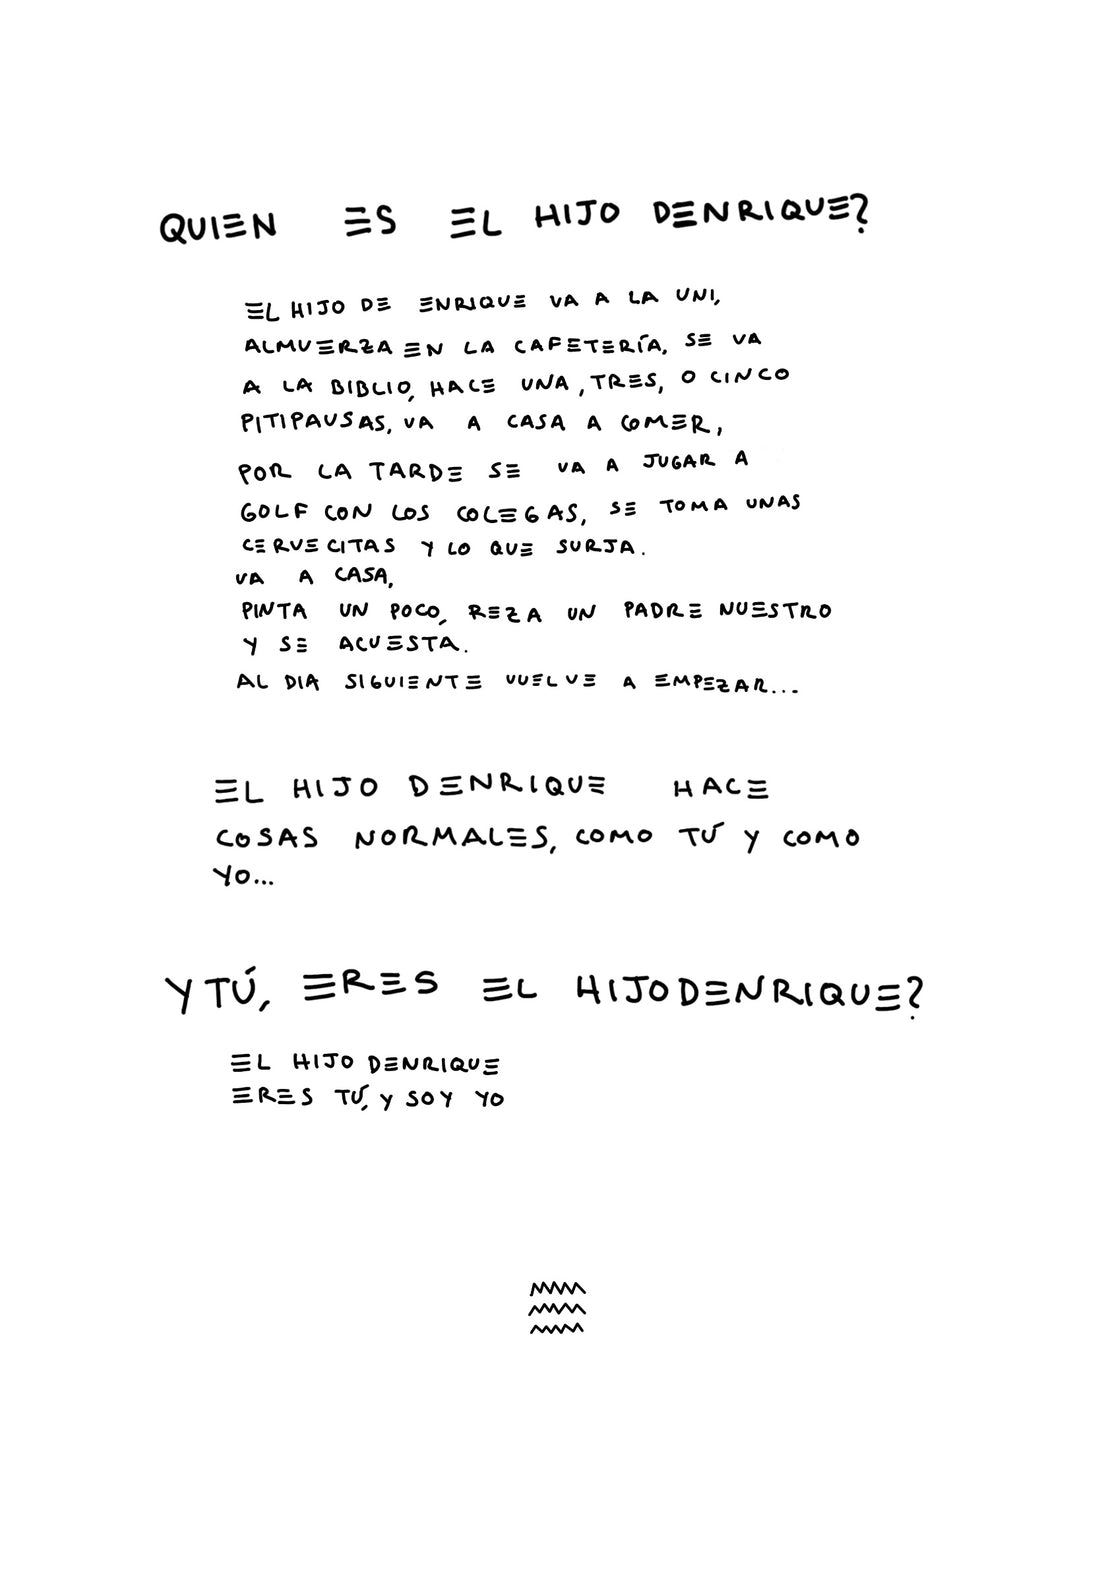 QUIEN ES EL HIJO DENRIQUE?
EL HIJO DE ENRIQUE VA A LA UNI,
ALMUERZA EN LA CAFETERÍA, SE VA
A LA BIBLIO, HACE UNA, TRES, O CINCO
PITIPAUSAS, VA A CASA A COMER,
POR LA TARDE SE VA A JUGAR A
GOLF CON LOS COLEGAS, SE TOMA UNAS
CERVECITAS Y LO QUE SURJA.
VA A CASA,
PINTA UN POCO, REZA UN PADRE NUESTRO
Y SE ACUESTA.
AL DIA SIGUIENTE VUELVE A EMPEZAR...
EL HIJO DENRIQUE HACE
COSAS NORMALES, COMO TÚ Y COMO
YO...
Y TÚ, ERES EL HIJODENRIQUE?
EL HIJO DENRIQUE
ERES TÚ, Y SOY YO